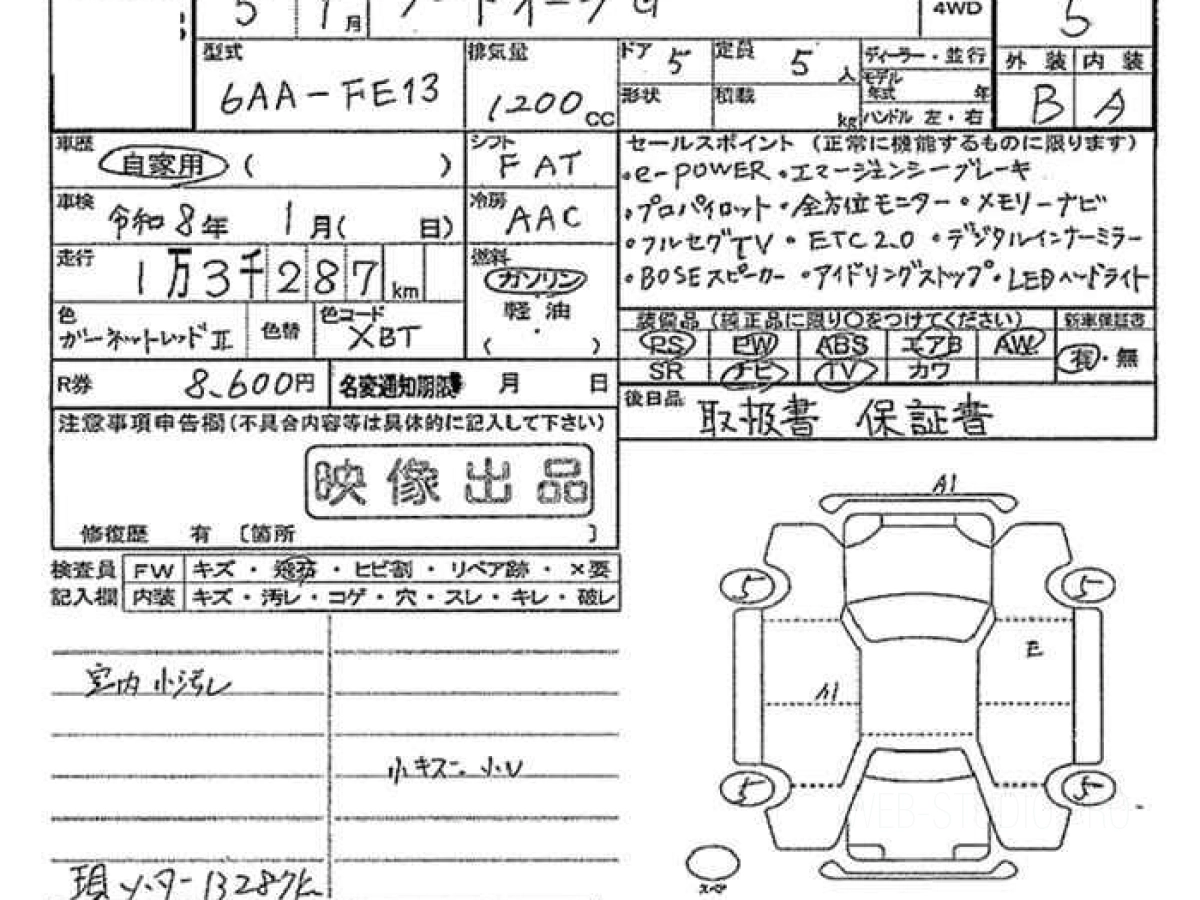 5 1月 G 4WD 5
型式 6AA-FE13
排気量 1200 CC
ドア 5 定員 5 人
形状 積載 kg
ディーラー・並行
モデル年式 年
ハンドル 左・右
外装 内装
B A
車歴 自家用 ( )
シフト F AT
車検 令和8年 1月( 日)
冷房 AAC
走行 1万3千287km
燃料 ガソリン
軽油
( )
色 ガーネットレッドII 色替 色コード XBT
R券 8,600円 名変通知期限 月 日
セールスポイント (正常に機能するものに限ります)
・e-POWER ・エマージェンシーブレーキ
・プロパイロット ・全方位モニター ・メモリーナビ
・フルセグTV ・ETC2.0 ・デジタルインナーミラー
・BOSEスピーカー ・アイドリングストップ ・LEDヘッドライト
装備品 (純正品に限り○をつけてください) 新車保証書
PS PW ABS エアB AW 有・無
SR ナビ TV カワ
後日品 取扱書 保証書
注意事項申告欄(不具合内容等は具体的に記入して下さい)
映像出品
修復歴 有 〔箇所 〕
検査員 FW キズ・飛石・ヒビ割・リペア跡・×要
記入欄 内装 キズ・汚レ・コゲ・穴・スレ・キレ・破レ
室内小汚レ
小キズ 小U
現メーター 13287km
A1
5 5
E
A1
5 5
スペア
WEB-STUDIO.PRO